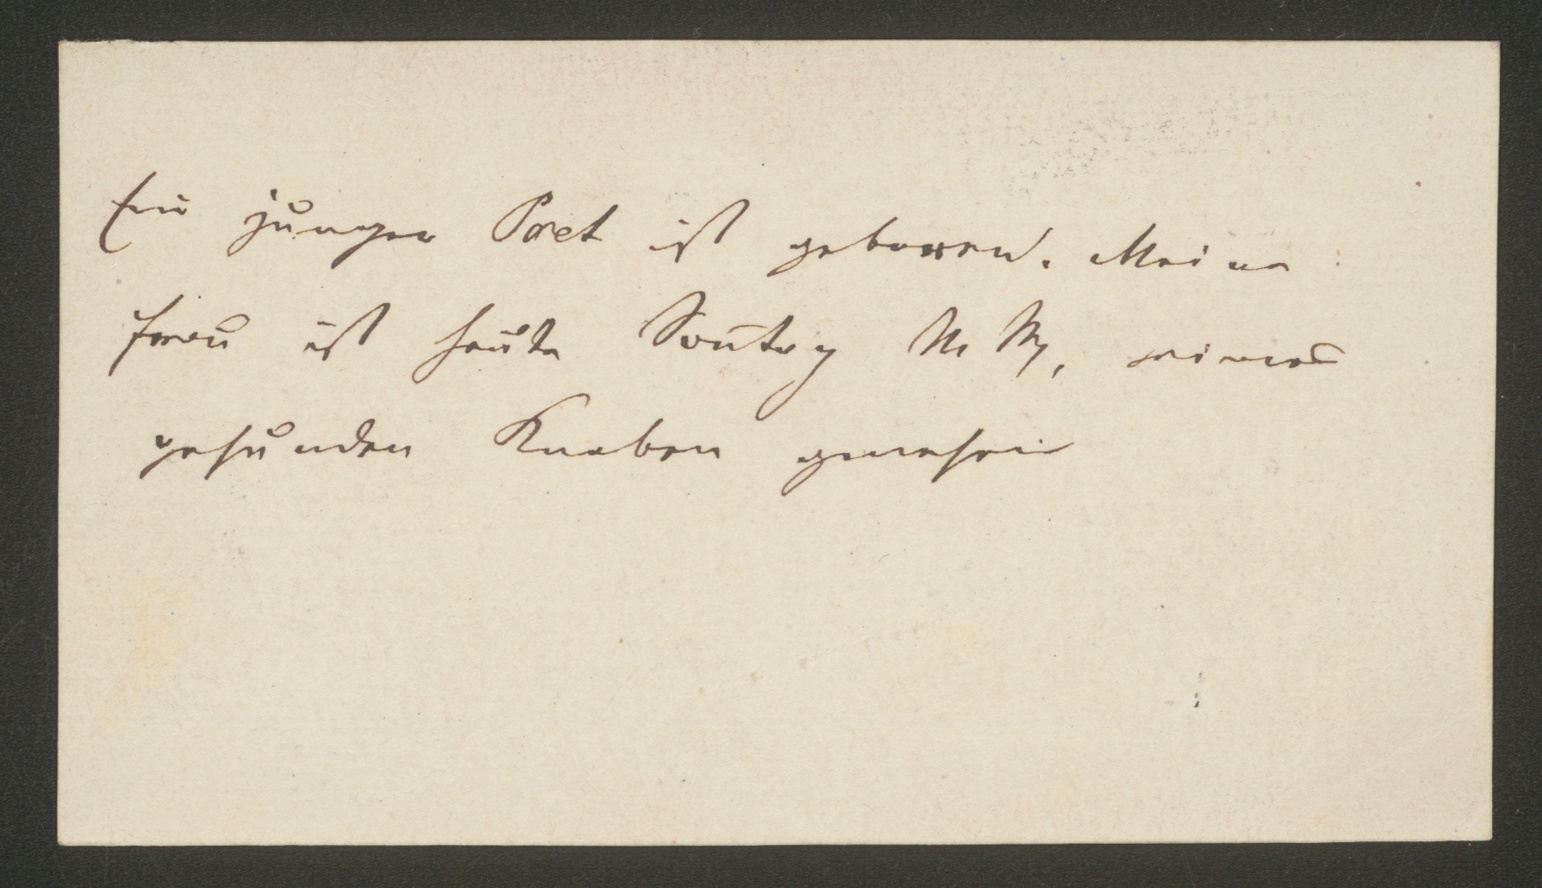 Ein junger Poet ist geboren. Meine
Frau ist heute Sonntag N M, eines
gesunden Knaben genesen